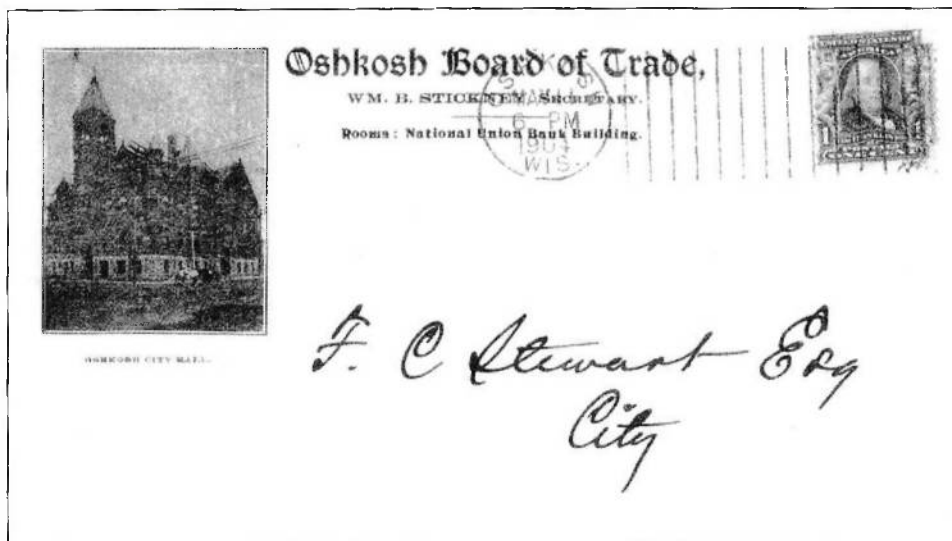 Oshkosh Board of Trade,
WM. B. STICKNEY, SECRETARY.
Rooms: National Union Bank Building.
6 - PM
1904
WIS.
1
OSHKOSH CITY HALL.
F. C Stewart Esq
City